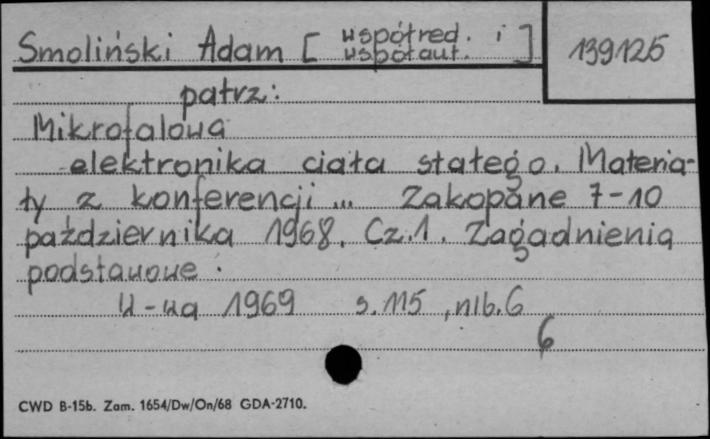 Smoliński Adam [ współred. i współaut. ] 139125
patrz:
Mikrofalowa
elektronika ciała stałego. Materia-
ły z konferencji ... Zakopane 7-10
października 1968. Cz.1. Zagadnienia
podstawowe.
W-wa 1969 s. 115, nlb. 6
6
CWD B-15b. Zam. 1654/Dw/On/68 GDA-2710.